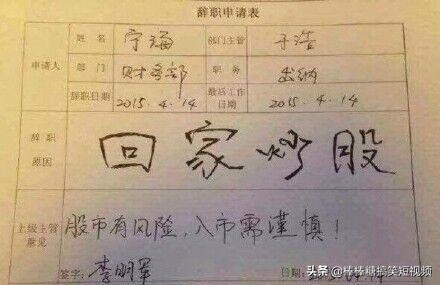 辞职申请表
申请人 姓名 宁海 部门主管 于浩
部门 财务部 职务 出纳
辞职日期 2015.4.14 最后工作日期 2015.4.14
辞职原因 回家炒股
上级主管意见 股市有风险,入市需谨慎!
签字: 李明军 日期:
头条@棒棒糖搞笑短视频